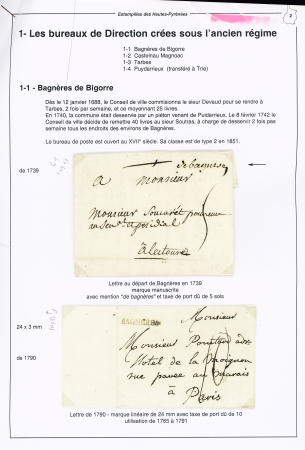 Estampilles des Hautes-Pyrénées
2
1- Les bureaux de Direction crées sous l'ancien régime
1-1 Bagnères de Bigorre
1-2 Castelnau Magnoac
1-3 Tarbes
1-4 Puydarrieux (transféré à Trie)
1-1 - Bagnères de Bigorre
Dès le 12 janvier 1688, le Conseil de ville commissionna le sieur Devaud pour se rendre à
Tarbes, 2 fois par semaine, et ce moyennant 25 livres.
En 1740, la commune était desservie par un piéton venant de Puidarrieux. Le 8 février 1742 le
Conseil de ville décide de remettre 40 livres au sieur Soutras, à charge de desservir 2 fois pas
semaine tous les endroits des environs de Bagnères.
Le bureau de poste est ouvert au XVI° siècle. Sa classe est de type 2 en 1851.
de 1739
debagneres
a monsieur
Monsieur
au
alectoure
Lettre au départ de Bagnères en 1739
marque manuscrite
avec mention "de bagnères" et taxe de port dû de 5 sols
24 x 3 mm
de 1790
BAGNERES
Monsieur
Monsieur
hotel de la
rue pavée au marais
à Paris
Lettre de 1790 - marque linéaire de 24 mm avec taxe de port dû de 10
utilisation de 1765 à 1791